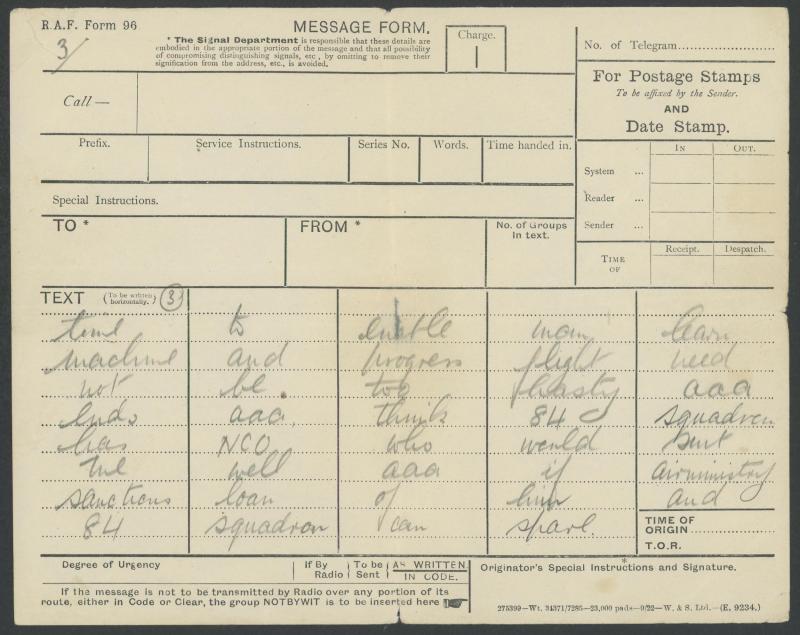 R.A.F. Form 96
MESSAGE FORM.
3/
* The Signal Department is responsible that these details are
embodied in the appropriate portion of the message and that all possibility
of compromising distinguishing signals, etc., by omitting to remove their
signification from the address, etc., is avoided.
Charge.
No. of Telegram
For Postage Stamps
To be affixed by the Sender.
AND
Date Stamp.
Call —
Prefix. Service Instructions. Series No. Words. Time handed in.
IN OUT.
System ...
Reader ...
Sender ...
Special Instructions.
TO * FROM * No. of Groups
in text.
Receipt. Despatch.
TIME
OF
TEXT (To be written horizontally.) 3
time to enable man learn
machine and progress flight need
not be too hasty aaa
ends aaa think 84 squadron
has NCO who would suit
me well aaa if airministry
sanctions loan of him and
84 squadron can spare.
TIME OF
ORIGIN
T.O.R.
Degree of Urgency If By
Radio To be
Sent AS WRITTEN
IN CODE.
Originator's Special Instructions and Signature.*
If the message is not to be transmitted by Radio over any portion of its
route, either in Code or Clear, the group NOTBYWIT is to be inserted here
275399—Wt. 34371/7285—23,000 pads—9/22—W. & S. Ltd.—(E. 9234.)